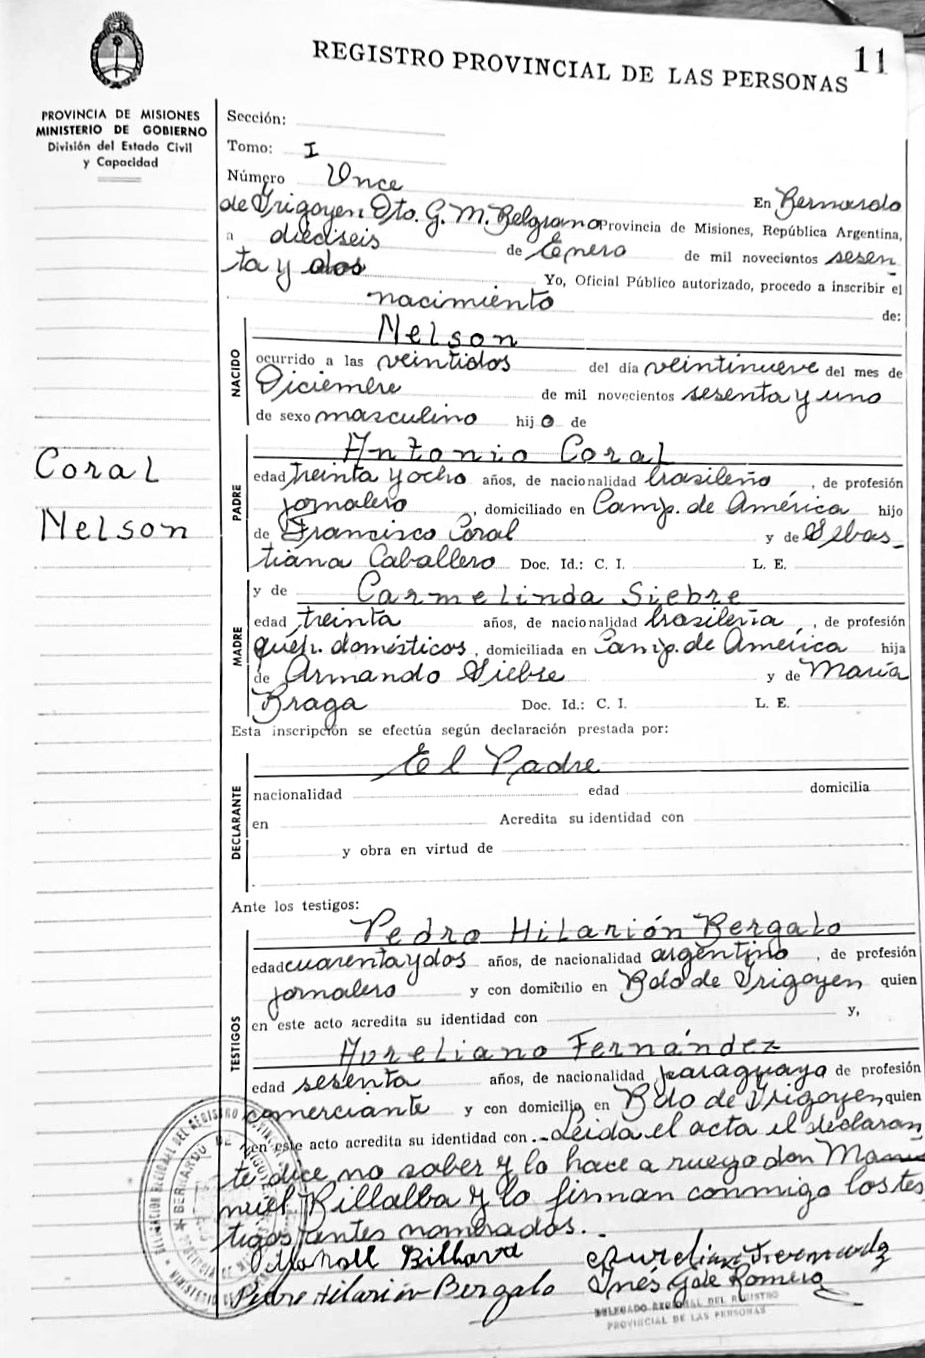 11
REGISTRO PROVINCIAL DE LAS PERSONAS
PROVINCIA DE MISIONES
MINISTERIO DE GOBIERNO
División del Estado Civil
y Capacidad
Coral
Nelson
Sección:
Tomo: I
Número Once
En Bernardo
de Irigoyen Dto. G. M. Belgrano Provincia de Misiones, República Argentina,
a dieciseis de Enero de mil novecientos sesen
ta y dos Yo, Oficial Público autorizado, procedo a inscribir el
nacimiento de:
NACIDO
Nelson
ocurrido a las veintidos del día veintinueve del mes de
Diciembre de mil novecientos sesenta y uno
de sexo masculino hijo de
PADRE
Antonio Coral
edad treinta y ocho años, de nacionalidad brasileño, de profesión
jornalero, domiciliado en Camp. de América hijo
de Francisco Coral y de Sebas-
tiana Caballero Doc. Id.: C. I. L. E.
MADRE
y de Carmelinda Siebre
edad treinta años, de nacionalidad brasileña, de profesión
queh. domésticos, domiciliada en Camp. de América hija
de Armando Siebre y de María
Braga Doc. Id.: C. I. L. E.
Esta inscripción se efectúa según declaración prestada por:
DECLARANTE
El Padre
nacionalidad edad domicilia
en Acredita su identidad con
y obra en virtud de
Ante los testigos:
TESTIGOS
Pedro Hilarión Bergalo
edad cuarenta y dos años, de nacionalidad argentino, de profesión
jornalero y con domicilio en Bdo de Irigoyen quien
en este acto acredita su identidad con y,
Aureliano Fernández
edad sesenta años, de nacionalidad paraguaya de profesión
comerciante y con domicilio en Bdo de Irigoyen, quien
en este acto acredita su identidad con.-Leida el acta el declaran
te dice no saber y lo hace a ruego don Ma
nuel Billalba y lo firman conmigo los tes
tigos antes nombrados.-
Pedro Hilarión Bergalo
Inés G. de Romero
DELEGADO REGIONAL DEL REGISTRO
PROVINCIAL DE LAS PERSONAS